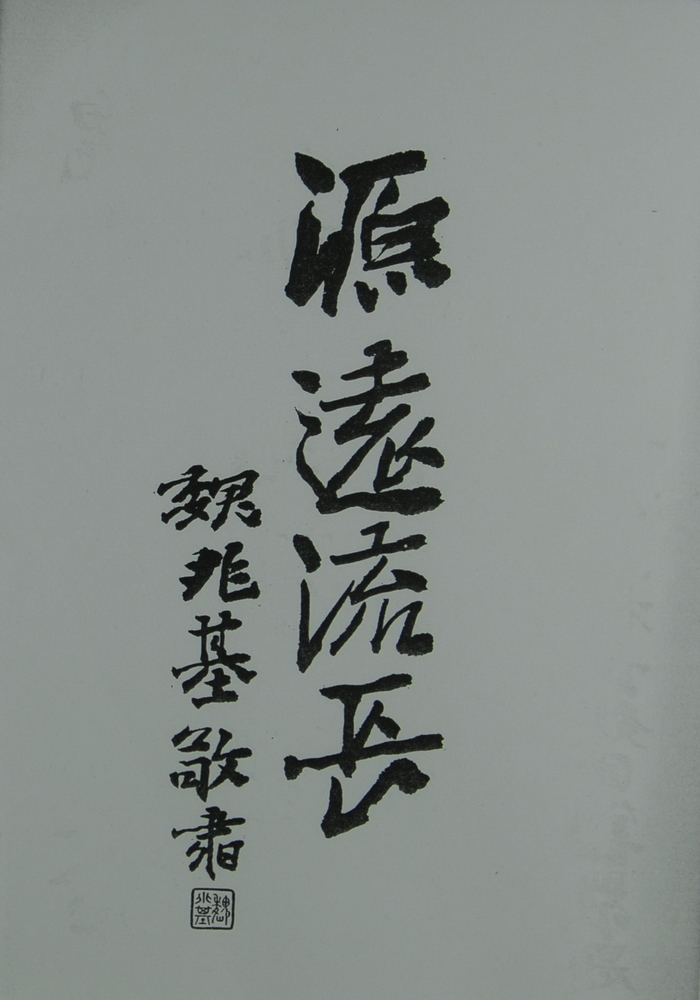 源遠流長
魏兆基敬書
魏兆基